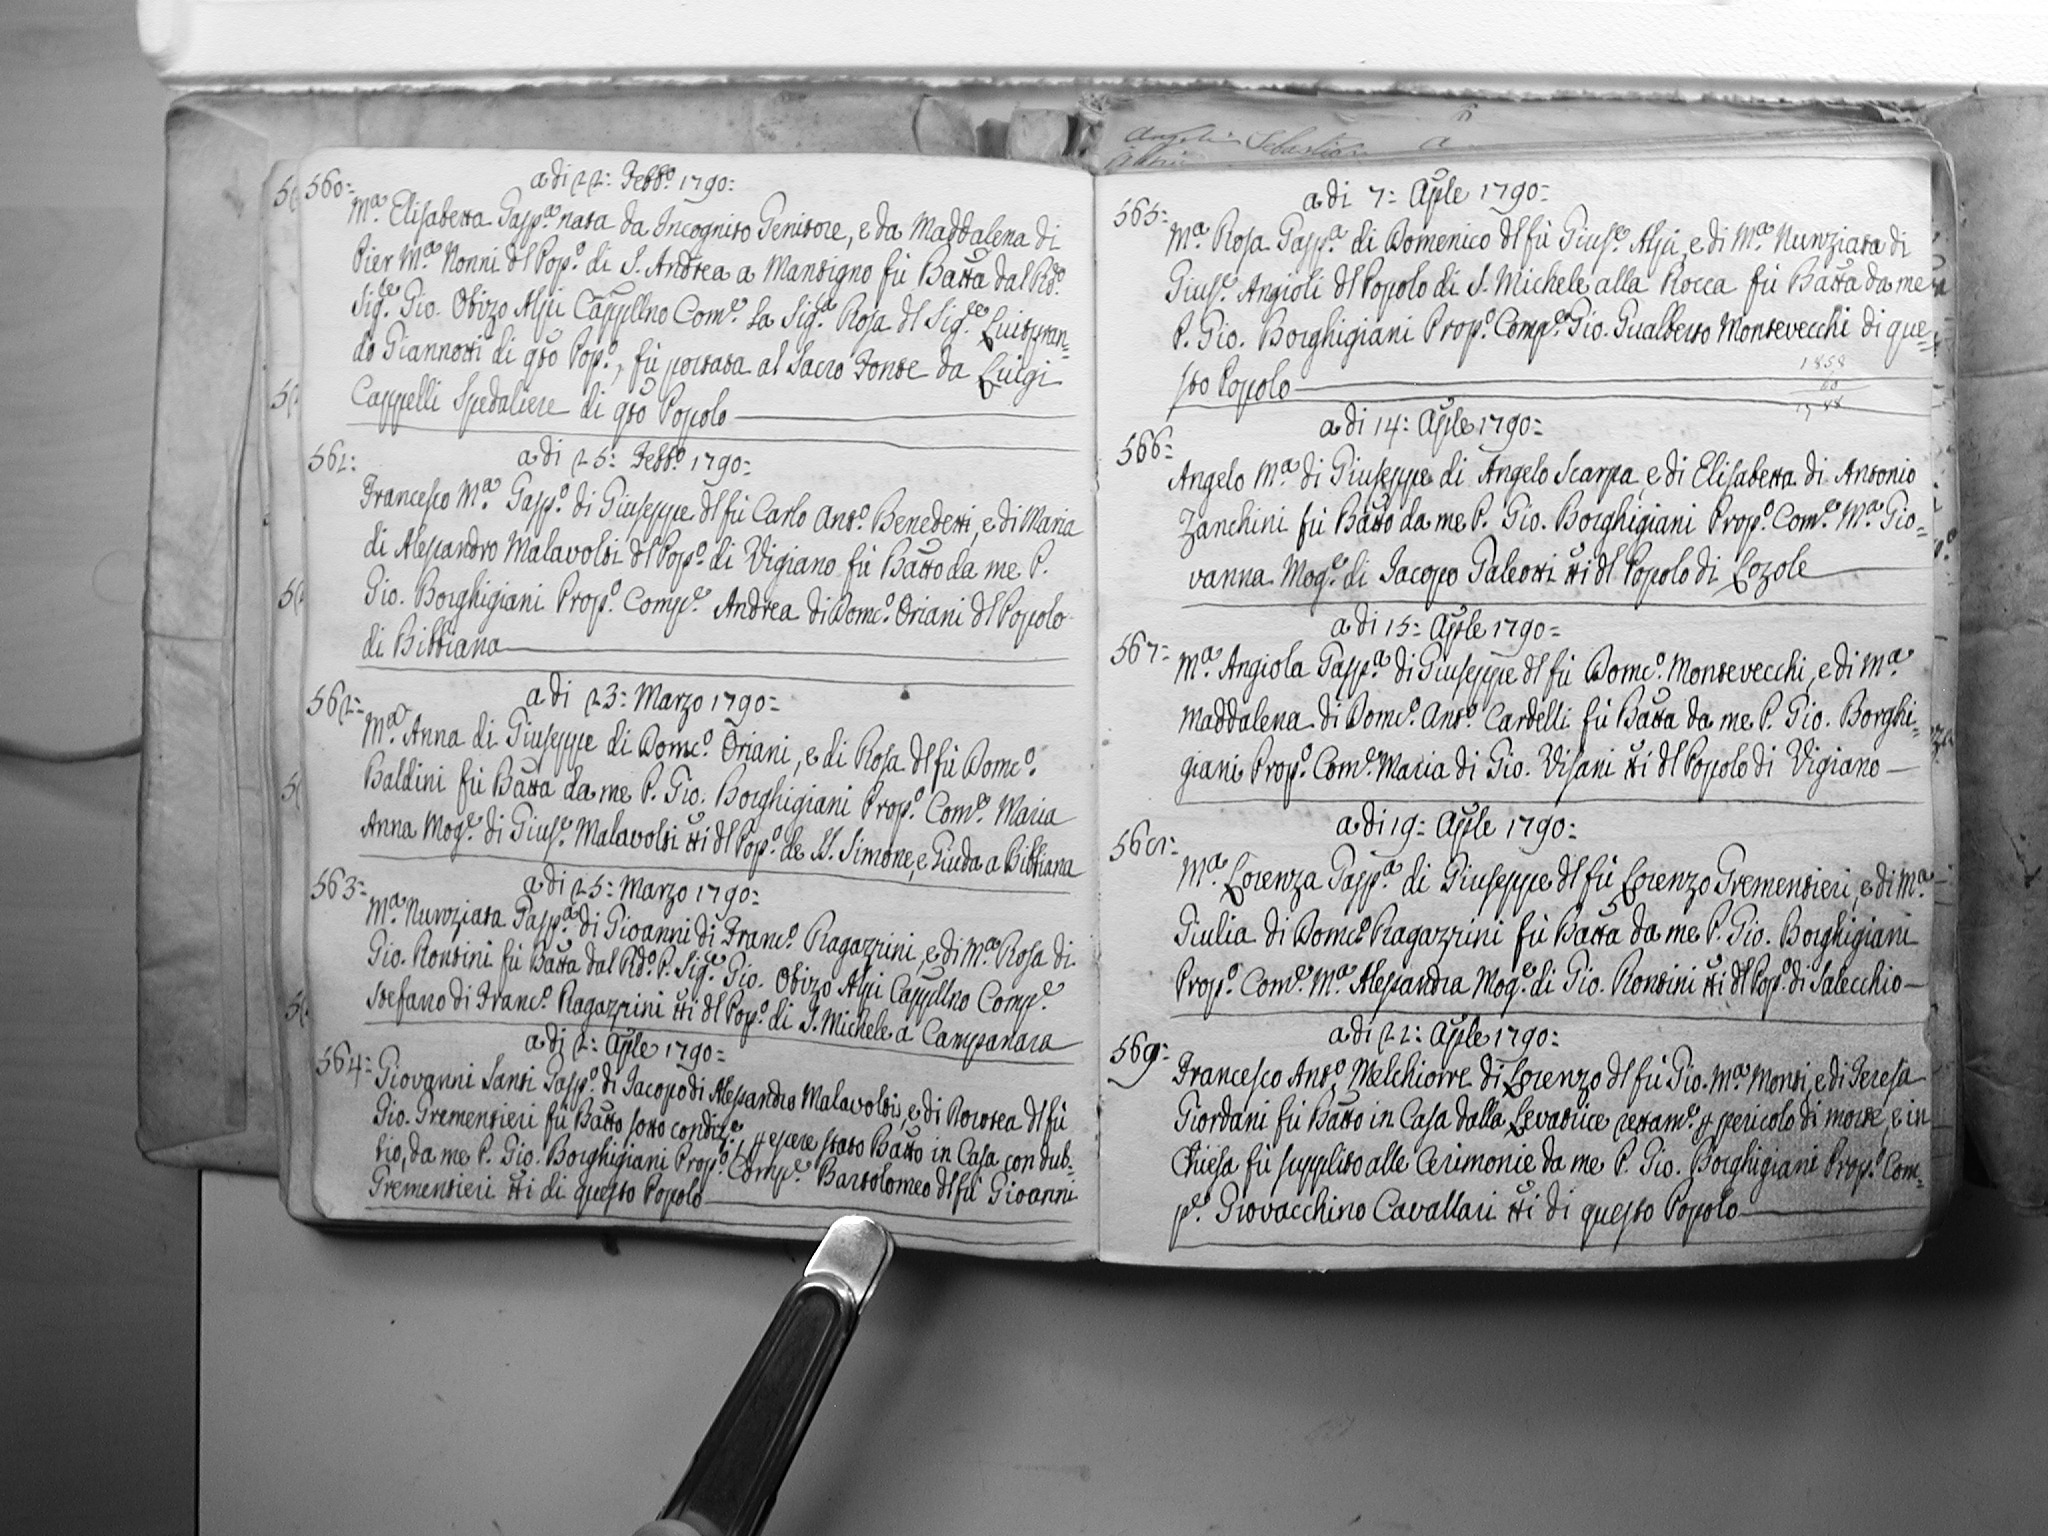 560=
a di 22: Febb.º 1790:
M.ª Elisabetta Gasp.ª nata da Incognito Genitore, e da Maddalena di
Pier M.ª Nonni dl Pop.º di S. Andrea a Mantigno fù Batta dal Rdo.
Sig.e Gio. Obizo Alpi Cappllno Com.e La Sig.ra Rosa dl Sig.e Luitpran=
do Giannotti di qto Pop.º, fù portata al Sacro Fonte da Luigi
Cappelli Spedaliere di qto Popolo
561:
a di 25: Febb.º 1790:
Francesco M.ª Gasp.º di Giuseppe dl fù Carlo Ant.º Benedetti, e di Maria
di Alessandro Malavolti dl Pop.º di Vigiano fù Batto da me P.
Gio. Borghigiani Prop.º Comp.e Andrea di Dom.co Oriani dl Popolo
di Bibbiana
562=
a di 23: Marzo 1790:
M.ª Anna di Giuseppe di Dom.co Oriani, e di Rosa dl fù Dom.co
Baldini fù Batta da me P. Gio. Borghigiani Prop.º Com.e Maria
Anna Mog.e di Gius.e Malavolti tti dl Pop.º de SS. Simone, e Giuda a Bibbiana
563=
a di 25: Marzo 1790=
M.ª Nunziata Gasp.ª di Gioanni di Franc.º Ragazzini, e di M.ª Rosa di
Gio. Rontini fù Batta dal Rdo. P. Sig.e Gio. Obizo Alpi Cappllno Comp.e
Stefano di Franc.º Ragazzini tti dl Pop.º di S. Michele a Campanara
564=
a di 2: Aple 1790=
Giovanni Santi Gasp.º di Jacopo di Alessandro Malavolti, e di Dorotea dl fù
Gio. Grementieri fù Batto sotto condiz.e, p essere stato Batto in Casa con dub=
bio, da me P. Gio. Borghigiani Prop.º Comp.e Bartolomeo dl fù Gioanni
Grementieri tti di questo Popolo
565=
a di 7: Aple 1790=
M.ª Rosa Gasp.ª di Domenico dl fù Gius.e Alpi, e di M.ª Nunziata di
Gius.e Angioli dl Popolo di S. Michele alla Rocca fù Batta da me
P. Gio. Borghigiani Prop.º Comp.e Gio. Gualberto Montevecchi di que=
sto Popolo
1858
566=
a di 14: Aple 1790=
Angelo M.ª di Giuseppe di Angelo Scarpa, e di Elisabetta di Antonio
Zanchini fù Batto da me P. Gio. Borghigiani Prop.º Com.e M.ª Gio=
vanna Mog.e di Jacopo Galeotti tti dl Popolo di Lozole
567=
a di 15: Aple 1790=
M.ª Angiola Gasp.ª di Giuseppe dl fù Dom.co Montevecchi, e di M.ª
Maddalena di Dom.co Ant.º Cardelli fù Batta da me P. Gio. Borghi=
giani Prop.º Com.e Maria di Gio. Visani tti dl Popolo di Vigiano
568=
a di 19: Aple 1790=
M.ª Lorenza Gasp.ª di Giuseppe dl fù Lorenzo Grementieri, e di M.ª
Giulia di Dom.co Ragazzini fù Batta da me P. Gio. Borghigiani
Prop.º Com.e M.ª Alessandra Mog.e di Gio. Rontini tti dl Pop.º di Salecchio
569=
a di 22: Aple 1790=
Francesco Ant.º Melchiorre di Lorenzo dl fù Gio. M.ª Monti, e di Teresa
Giordani fù Batto in Casa dalla Levatrice rettam.e p pericolo di morte, e in
Chiesa fù supplito alle Cerimonie da me P. Gio. Borghigiani Prop.º Com=
p.e Giovacchino Cavallari tti di questo Popolo